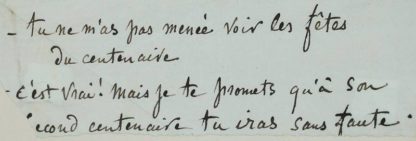 - tu ne m'as pas menée voir les fêtes
du centenaire
- c'est vrai! mais je te promets qu'à son
second centenaire tu iras sans faute.